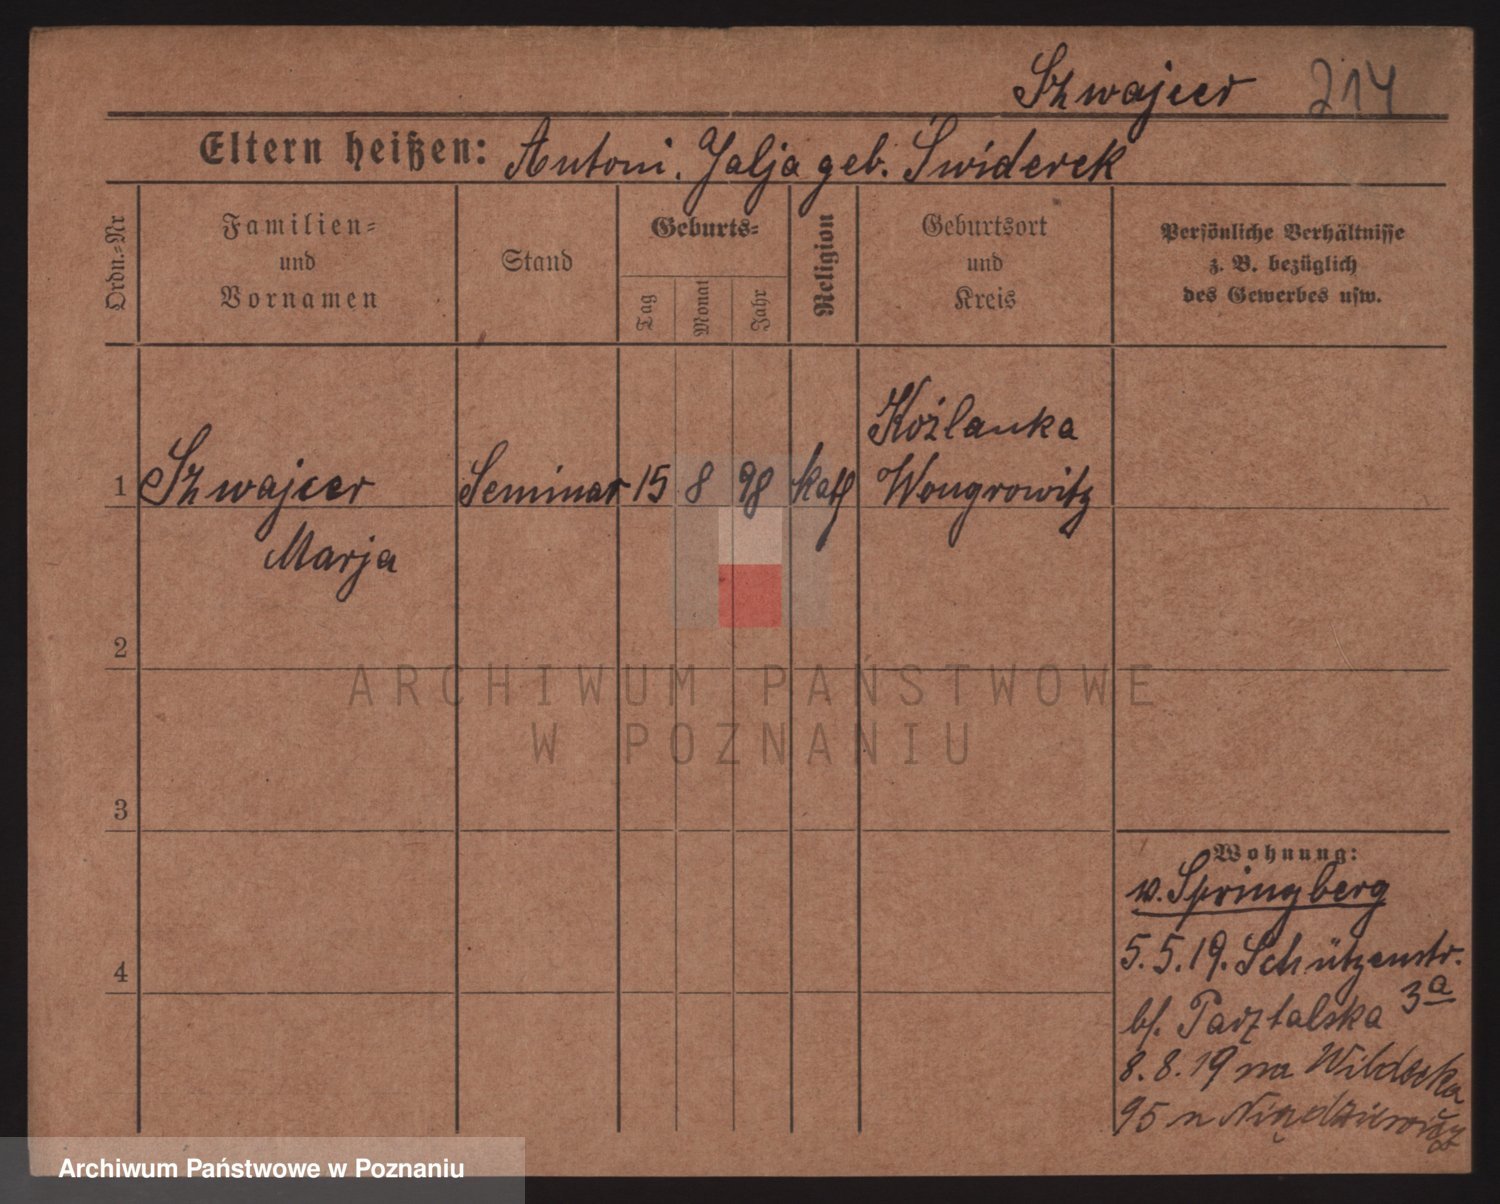 Szwajcer 214
Eltern heißen: Antoni. Jalja geb. Świderek
Ordn.-Nr
Familien-
und
Vornamen
Stand
Geburts-
Tag
Monat
Jahr
Religion
Geburtsort
und
Kreis
Persönliche Verhältnisse
z. B. bezüglich
des Gewerbes usw.
Koźlanka
1 Szwajcer Seminar 15 8 98 kath Wongrowitz
Marja
2
3
4
Wohnung:
v. Springberg
5.5.19. Schützenstr.
3a
bf. Paształska
8.8.19 na Wildecka
95 n
ARCHIWUM PAŃSTWOWE
W POZNANIU
Archiwum Państwowe w Poznaniu